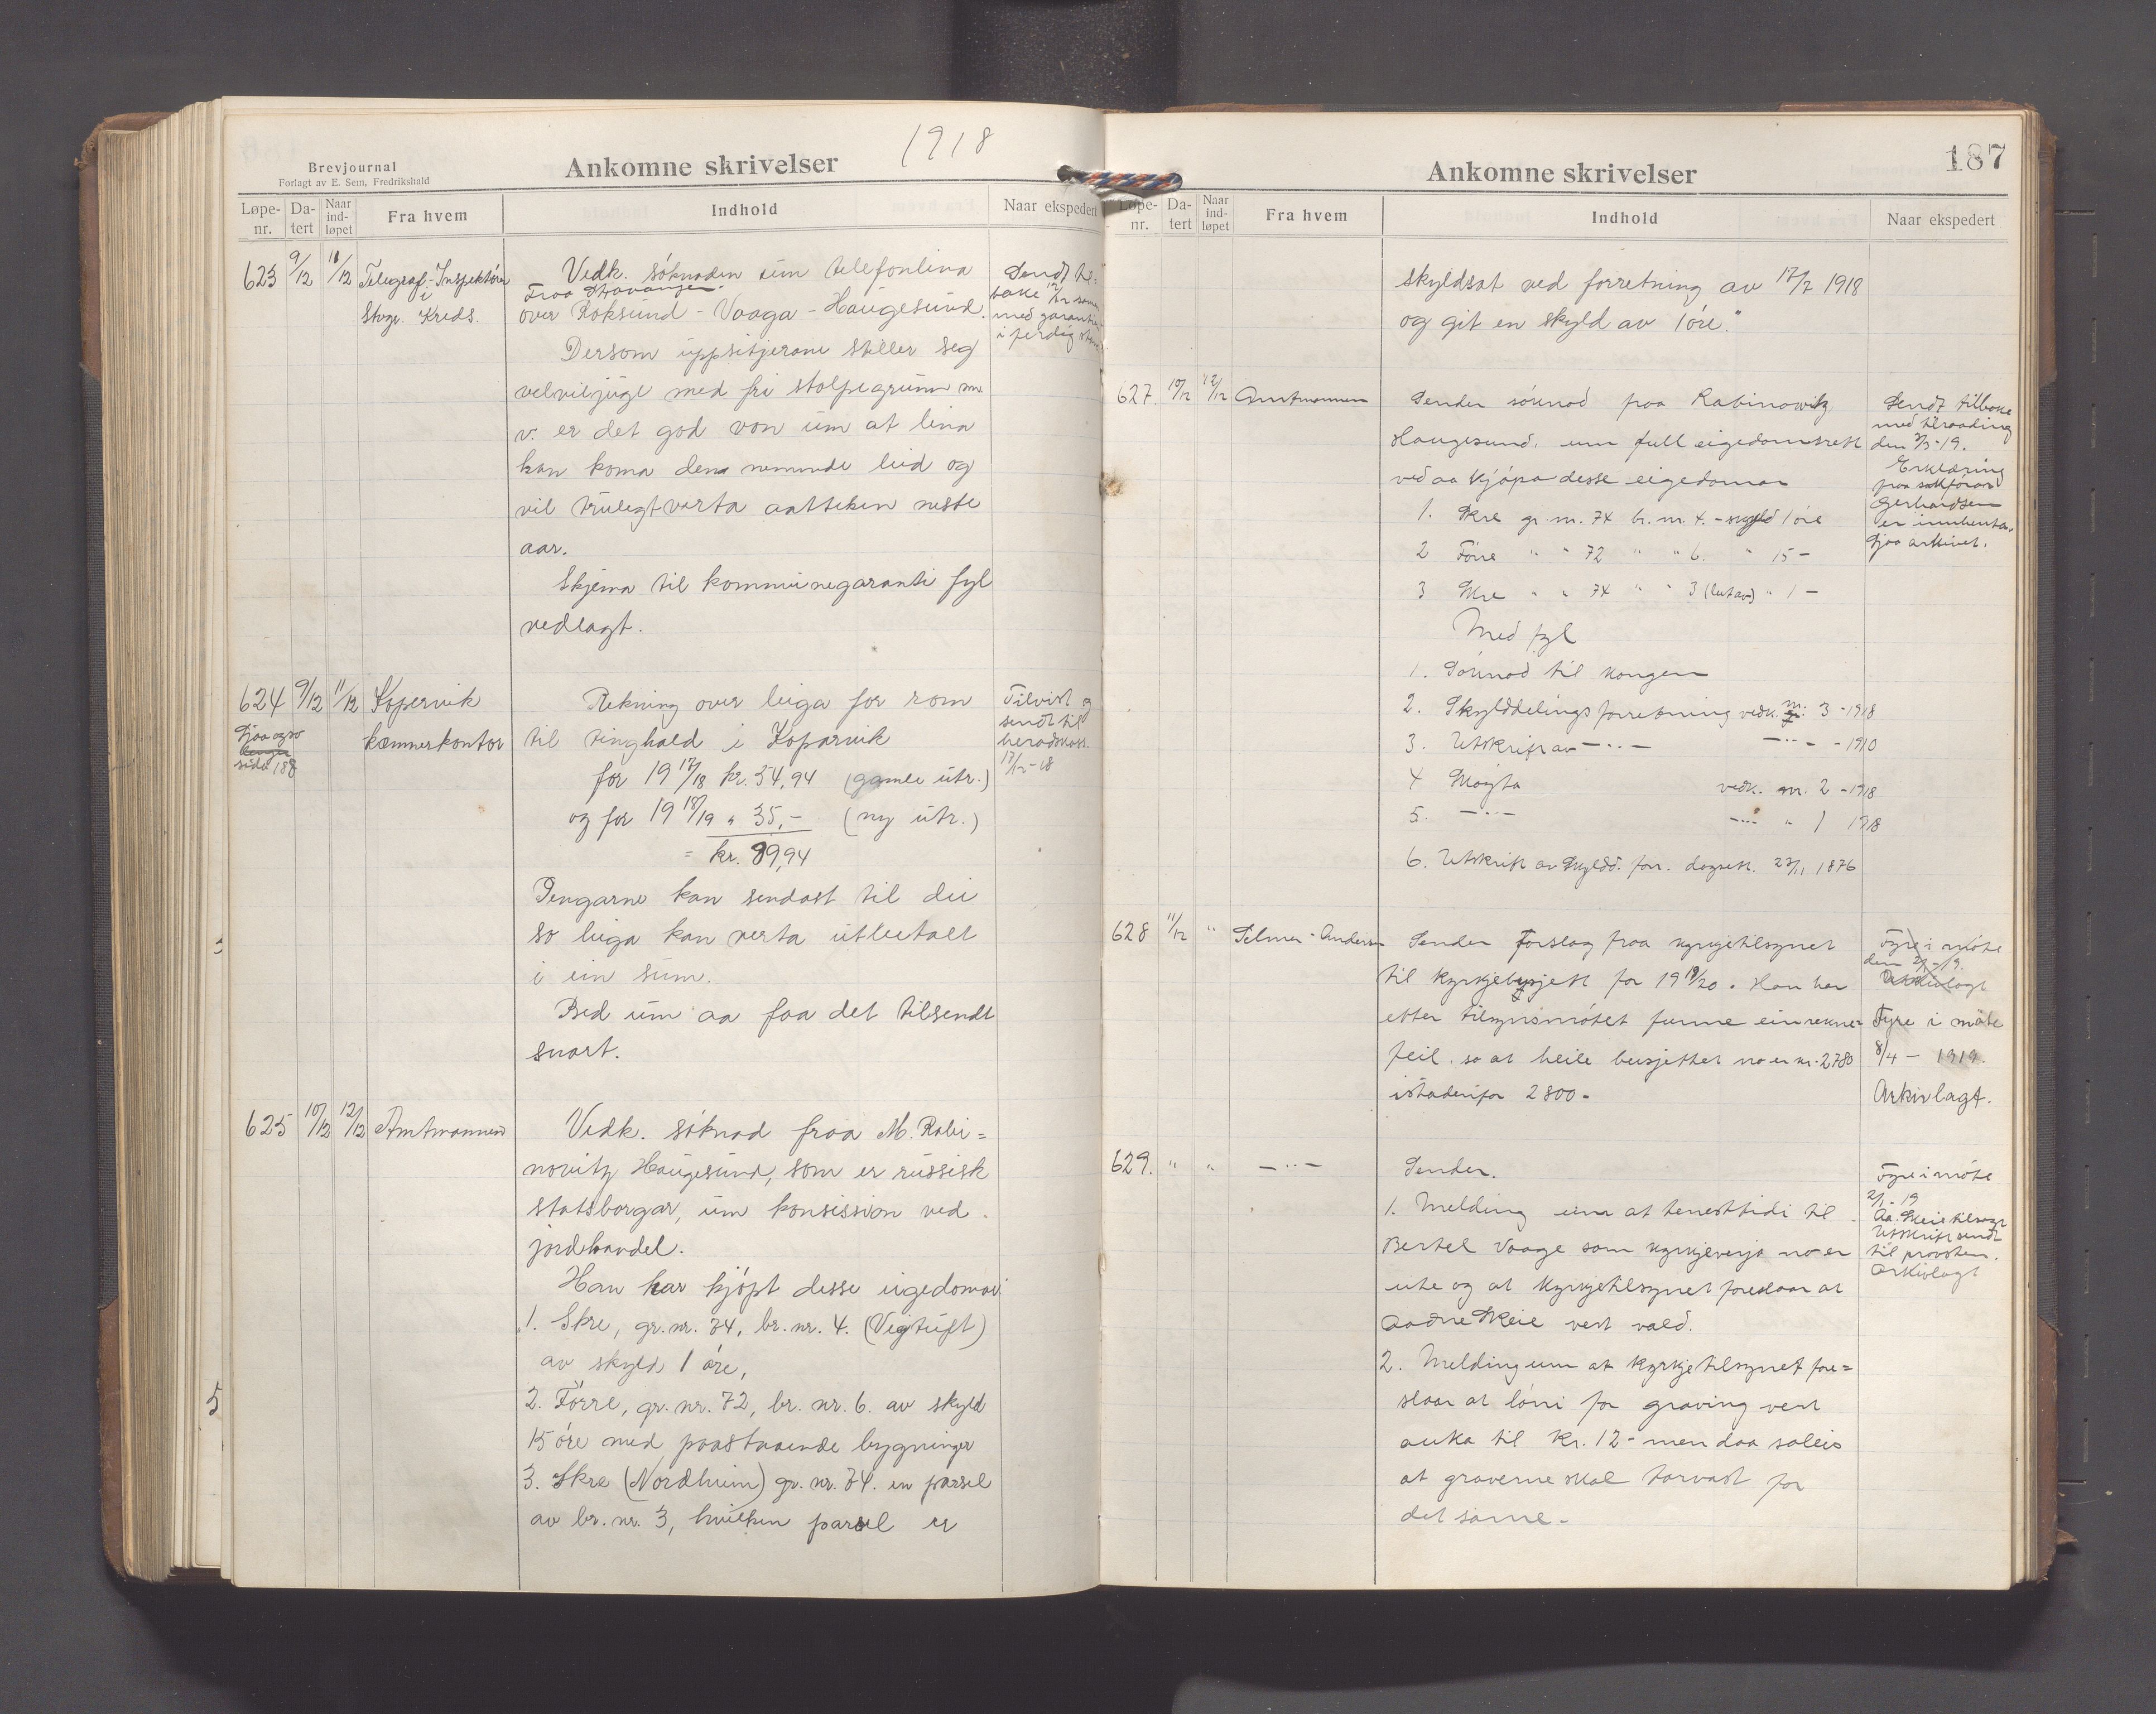 1918
Brevjournal
Forlagt av E. Sem, Fredrikshald
Ankomne skrivelser
Løpe-nr. Da-tert Naar ind-løpet Fra hvem Indhold Naar ekspedert
623 9/12 11/12 Telegraf-Inspektøren
i
Stvgr. Kreds.
Vedk. søknaden um telefonlina
Fraa Stavanger
over Røksund - Vaaga - Haugesund.
Dersom uppsitjerane stiller seg
velviljuge med fri stolpegrunn m.
v. er det god von um at lina
kan koma den nemnde leid og
vil truleg verta aatteken neste
aar.
Skjema til kommunegaranti fyl
vedlagt.
Sendt til-
bake
med garanti
i ferdig
624 9/12 11/12 Kopervik
kæmnerkontor
Sjaa ogso
side 188
Rekning over leiga for rom
til tinghald i Koparvik
for 19 17/18 kr. 54,94 (gamle utr.)
og for 19 18/19 " 35,- (ny utr.)
= kr. 89,94
Pengarne kan sendast til dei
so leiga kan verta utbetalt
i ein sum.
Bed um aa faa det tilsendt
snart.
Tilvist og
sendt til
heradskass.
17/12-18
625 10/12 12/12 Amtmannen
Vedk. søknad fraa M. Rabi=
novitz Haugesund, som er russisk
statsborgar, um konsission ved
jordhandel.
Han har kjøpt desse eigedomar
"1. Skre, gr. nr. 74, br. nr. 4. (Vegtuft)
av skyld 1 øre,
2. Førre, gr. nr. 72, br. nr. 6. av skyld
15 øre med paastaaende bygninger
3. Skre (Nordheim) gr. nr. 74. en parsel
av br. nr. 3, hvilken parsel er
187
Ankomne skrivelser
Løpe-nr. Da-tert Naar ind-løpet Fra hvem Indhold Naar ekspedert
skyldsat ved forretning av 17/7 1918
og git en skyld av 1 øre."
627. 10/12 12/12 Amtmannen
Sender søknad fraa Rabinowitz
Haugesund, um full eigedomsrett
ved aa kjøpa desse eigedomar
1. Skre gr. nr. 74 br. nr. 4. - skyld 1 øre
2 Førre " " 72 " " 6. " 15 -
3 Skre " " 74 " " 3 (lut av) " 1 -
Med fyl
1. Søknad til kongen
2. Skylddelingsforretning vedk. nr. 3 - 1918
3. Utskrift av -"- -"- - 1910
4 Skøyta vedk. nr. 2 - 1918
5. -"- -"- " 1 1918
6. Utskrift av skyldd. forr. dagsett. 27/11 1876
Sendt tilbake
med tilraading
den 3/3-19.
Erklæring
fraa sakførar
Gerhardsen
er innhenta.
Sjaa arkivet.
628 11/12 " Selmer-Andersen
Sender Forslag fraa kyrkjetilsynet
til kyrkjebusjett for 19 19/20. Han har
etter tilsynsmøtet funne ein rekne=
feil, so at heile busjettet no er kr. 2780
istadenfor 2800-
Fyre i møte
den 2/1-19.
Arkivlagt
Fyre i møte
8/4 - 1919.
Arkivlagt.
629. " " -"-
Sender.
1. Melding um at tenesttidi til
Bertel Vaage som kyrkjeverja no er
ute og at kyrkjetilsynet foreslaar at
Aadne Skeie vert vald.
2. Melding um at kyrkjetilsynet fore=
slaar at løni for graving vert
auka til kr. 12- men daa soleis
at graverne skal torvast for
det same.-
Fyre i møte
2/1-19
Aa. Skeie tilsagt
Utskrift sendt
til prosten.
Arkivlagt